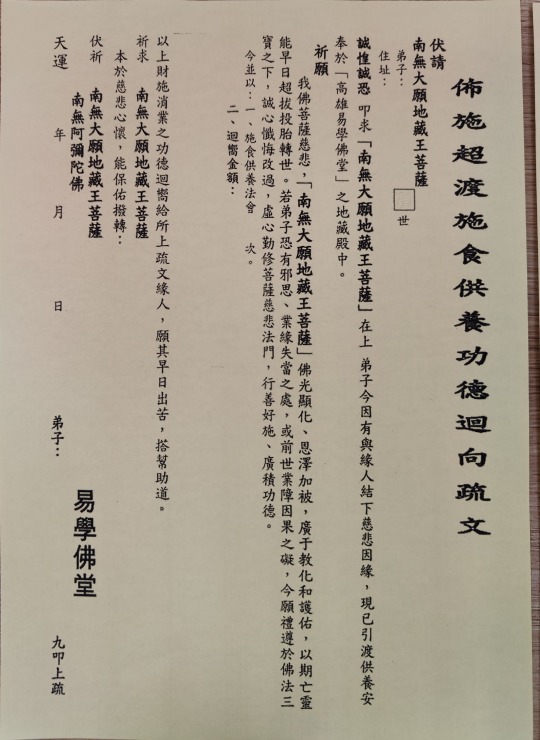 佈施超渡施食供養功德迴向疏文
伏請
南無大願地藏王菩薩
弟子：
住址：
世
誠惶誠恐 叩求「南無大願地藏王菩薩」在上 弟子今因有與緣人結下慈悲因緣，現已引渡供養安
奉於「高雄易學佛堂」之地藏殿中。
祈願
我佛菩薩慈悲，「南無大願地藏王菩薩」佛光顯化、恩澤加被，廣于教化和護佑，以期亡靈
能早日超拔投胎轉世。若弟子恐有邪思、業緣失當之處，或前世業障因果之礙，今願禮遵於佛法三
寶之下，誠心懺悔改過，虛心勤修菩薩慈悲法門，行善好施、廣積功德。
今並以：一、施食供養法會 次。
二、迴嚮金額：
以上財施消業之功德迴嚮給所上疏文緣人，願其早日出苦，搭幫助道。
祈求 南無大願地藏王菩薩
本於慈悲心懷，能保佑撥轉：
伏祈 南無大願地藏王菩薩
南無阿彌陀佛
天運 年 月 日 弟子：
易學佛堂 九叩上疏